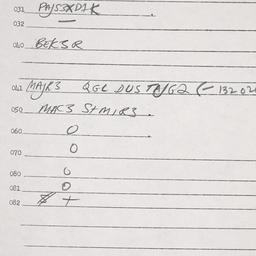 031 PAJSXD1K.
032 —
040 BEKSR
041 MAJR3 QGL DUS (- 132 02
050 MAC3 StMIRS.
060 0
070 0
080 0
081 0
082 +